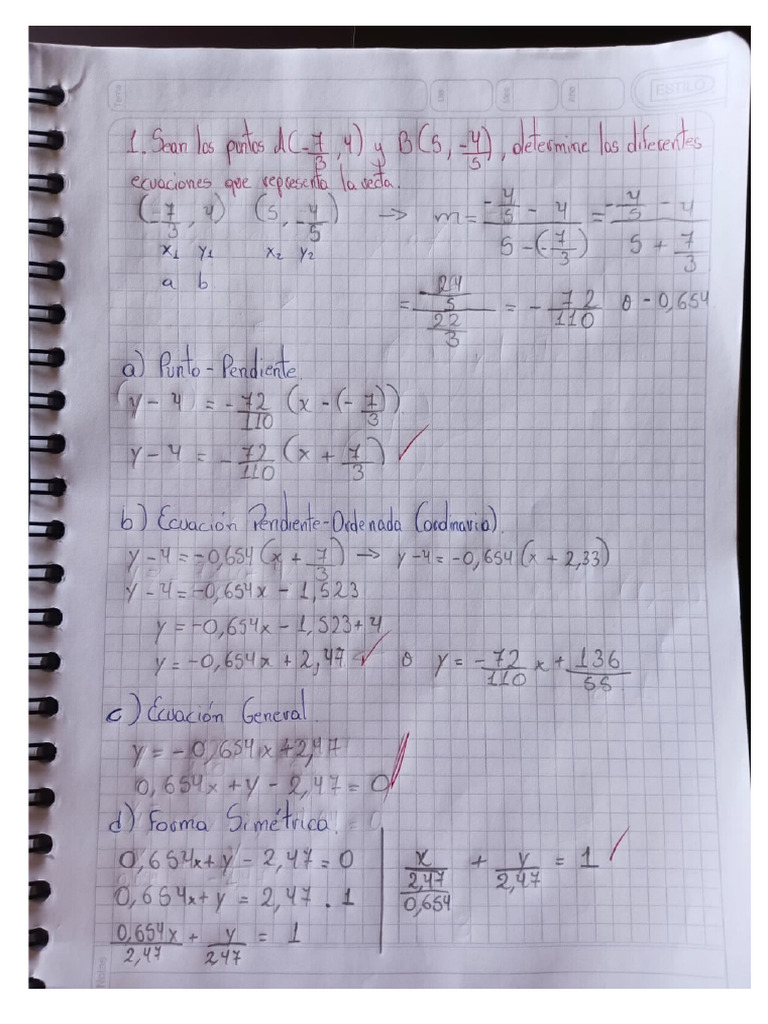 Tema
Día
Mes
Año
ESTILO
1. Sean los puntos A(-7/3, 4) y B(5, -4/5), determine las diferentes
ecuaciones que representa la recta.
(-7/3, 4) (5, -4/5) → m = (-4/5 - 4)/(5 - (-7/3)) = (-4/5 - 4)/(5 + 7/3)
x₁ y₁ x₂ y₂
a b
= (-24/5)/(22/3) = -72/110 ó -0,654
a) Punto-Pendiente
(y - 4) = -72/110 (x - (-7/3))
y - 4 = -72/110 (x + 7/3) ✓
b) Ecuación Pendiente-Ordenada (ordinaria).
y - 4 = -0,654(x + 7/3) → y - 4 = -0,654(x + 2,33)
y - 4 = -0,654x - 1,523
y = -0,654x - 1,523 + 4
y = -0,654x + 2,47 ✓ ó y = -72/110 x + 136/55
c) Ecuación General
y = -0,654x + 2,47
0,654x + y - 2,47 = 0 ✓
d) Forma Simétrica.
0,654x + y - 2,47 = 0
0,654x + y = 2,47 . 1
0,654x/2,47 + y/2,47 = 1
x/(2,47/0,654) + y/2,47 = 1 ✓
Notas